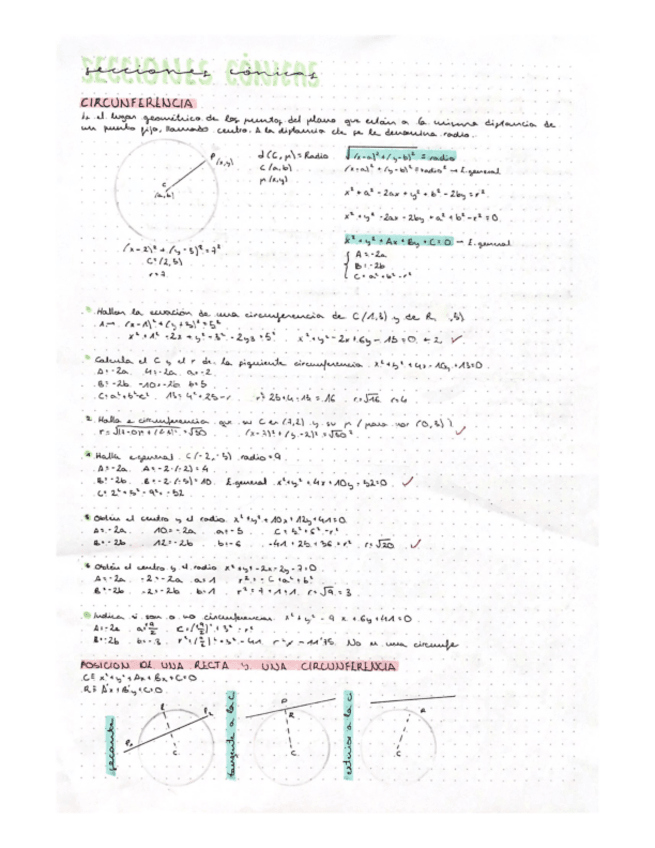 SECCIONES CÓNICAS
secciones cónicas
CIRCUNFERENCIA
Es el lugar geométrico de los puntos del plano que están a la misma distancia de
un punto fijo, llamado centro. A la distancia se le denomina radio.
P(x,y)
C
(a,b)
d(C, p) = Radio
C(a,b)
p(x,y)
√(x-a)²+(y-b)² = radio
(x-a)²+(y-b)² = radio² → E.general
x²+a²-2ax+y²+b²-2by=r²
x²+y²-2ax-2by+a²+b²-r²=0
x²+y²+Ax+By+C=0 → E.general
A=-2a
B=-2b
C=a²+b²-r²
(x-2)²+(y-5)²=7²
C=(2,5)
r=7
Hallar la ecuación de una circunferencia de C(1,3) y de R
Calcula el C y el r de la siguiente circunferencia x²+y²+4x-10y+13=0
A=-2a 4=-2a a=-2
B=-2b -10=-2b b=5
r=√16 r=4
Halla e circunferencia que su C en (7,2) y su p (para por (0,3))
Halla e.general C(-2,-5) radio=9
A=-2a A=-2·(-2)=4
B=-2b B=-2·(-5)=10 E.general x²+y²+4x+10y-52=0
C=2²+5²-9²=-52
Obtén el centro y el radio x²+y²+10x+12y+41=0
A=-2a 10=-2a a=-5 C=5²+6²-r²
B=-2b 12=-2b b=-6 -41+25+36=r² r=√20
Obtén el centro y el radio x²+y²-2x-2y-7=0
A=-2a -2=-2a a=1 r²=-C+a²+b²
B=-2b -2=-2b b=1 r²=7+1+1 r=√9=3
Indica si son o no circunferencias x²+y²-9x+6y+41=0
No es una circunfe
POSICIÓN DE UNA RECTA Y UNA CIRCUNFERENCIA
C≡ x²+y²+Ax+Bx+C=0
R≡ A'x+B'y+C=0
secante
C
tangente a la c
P
R
C
exterior a la c
R
C